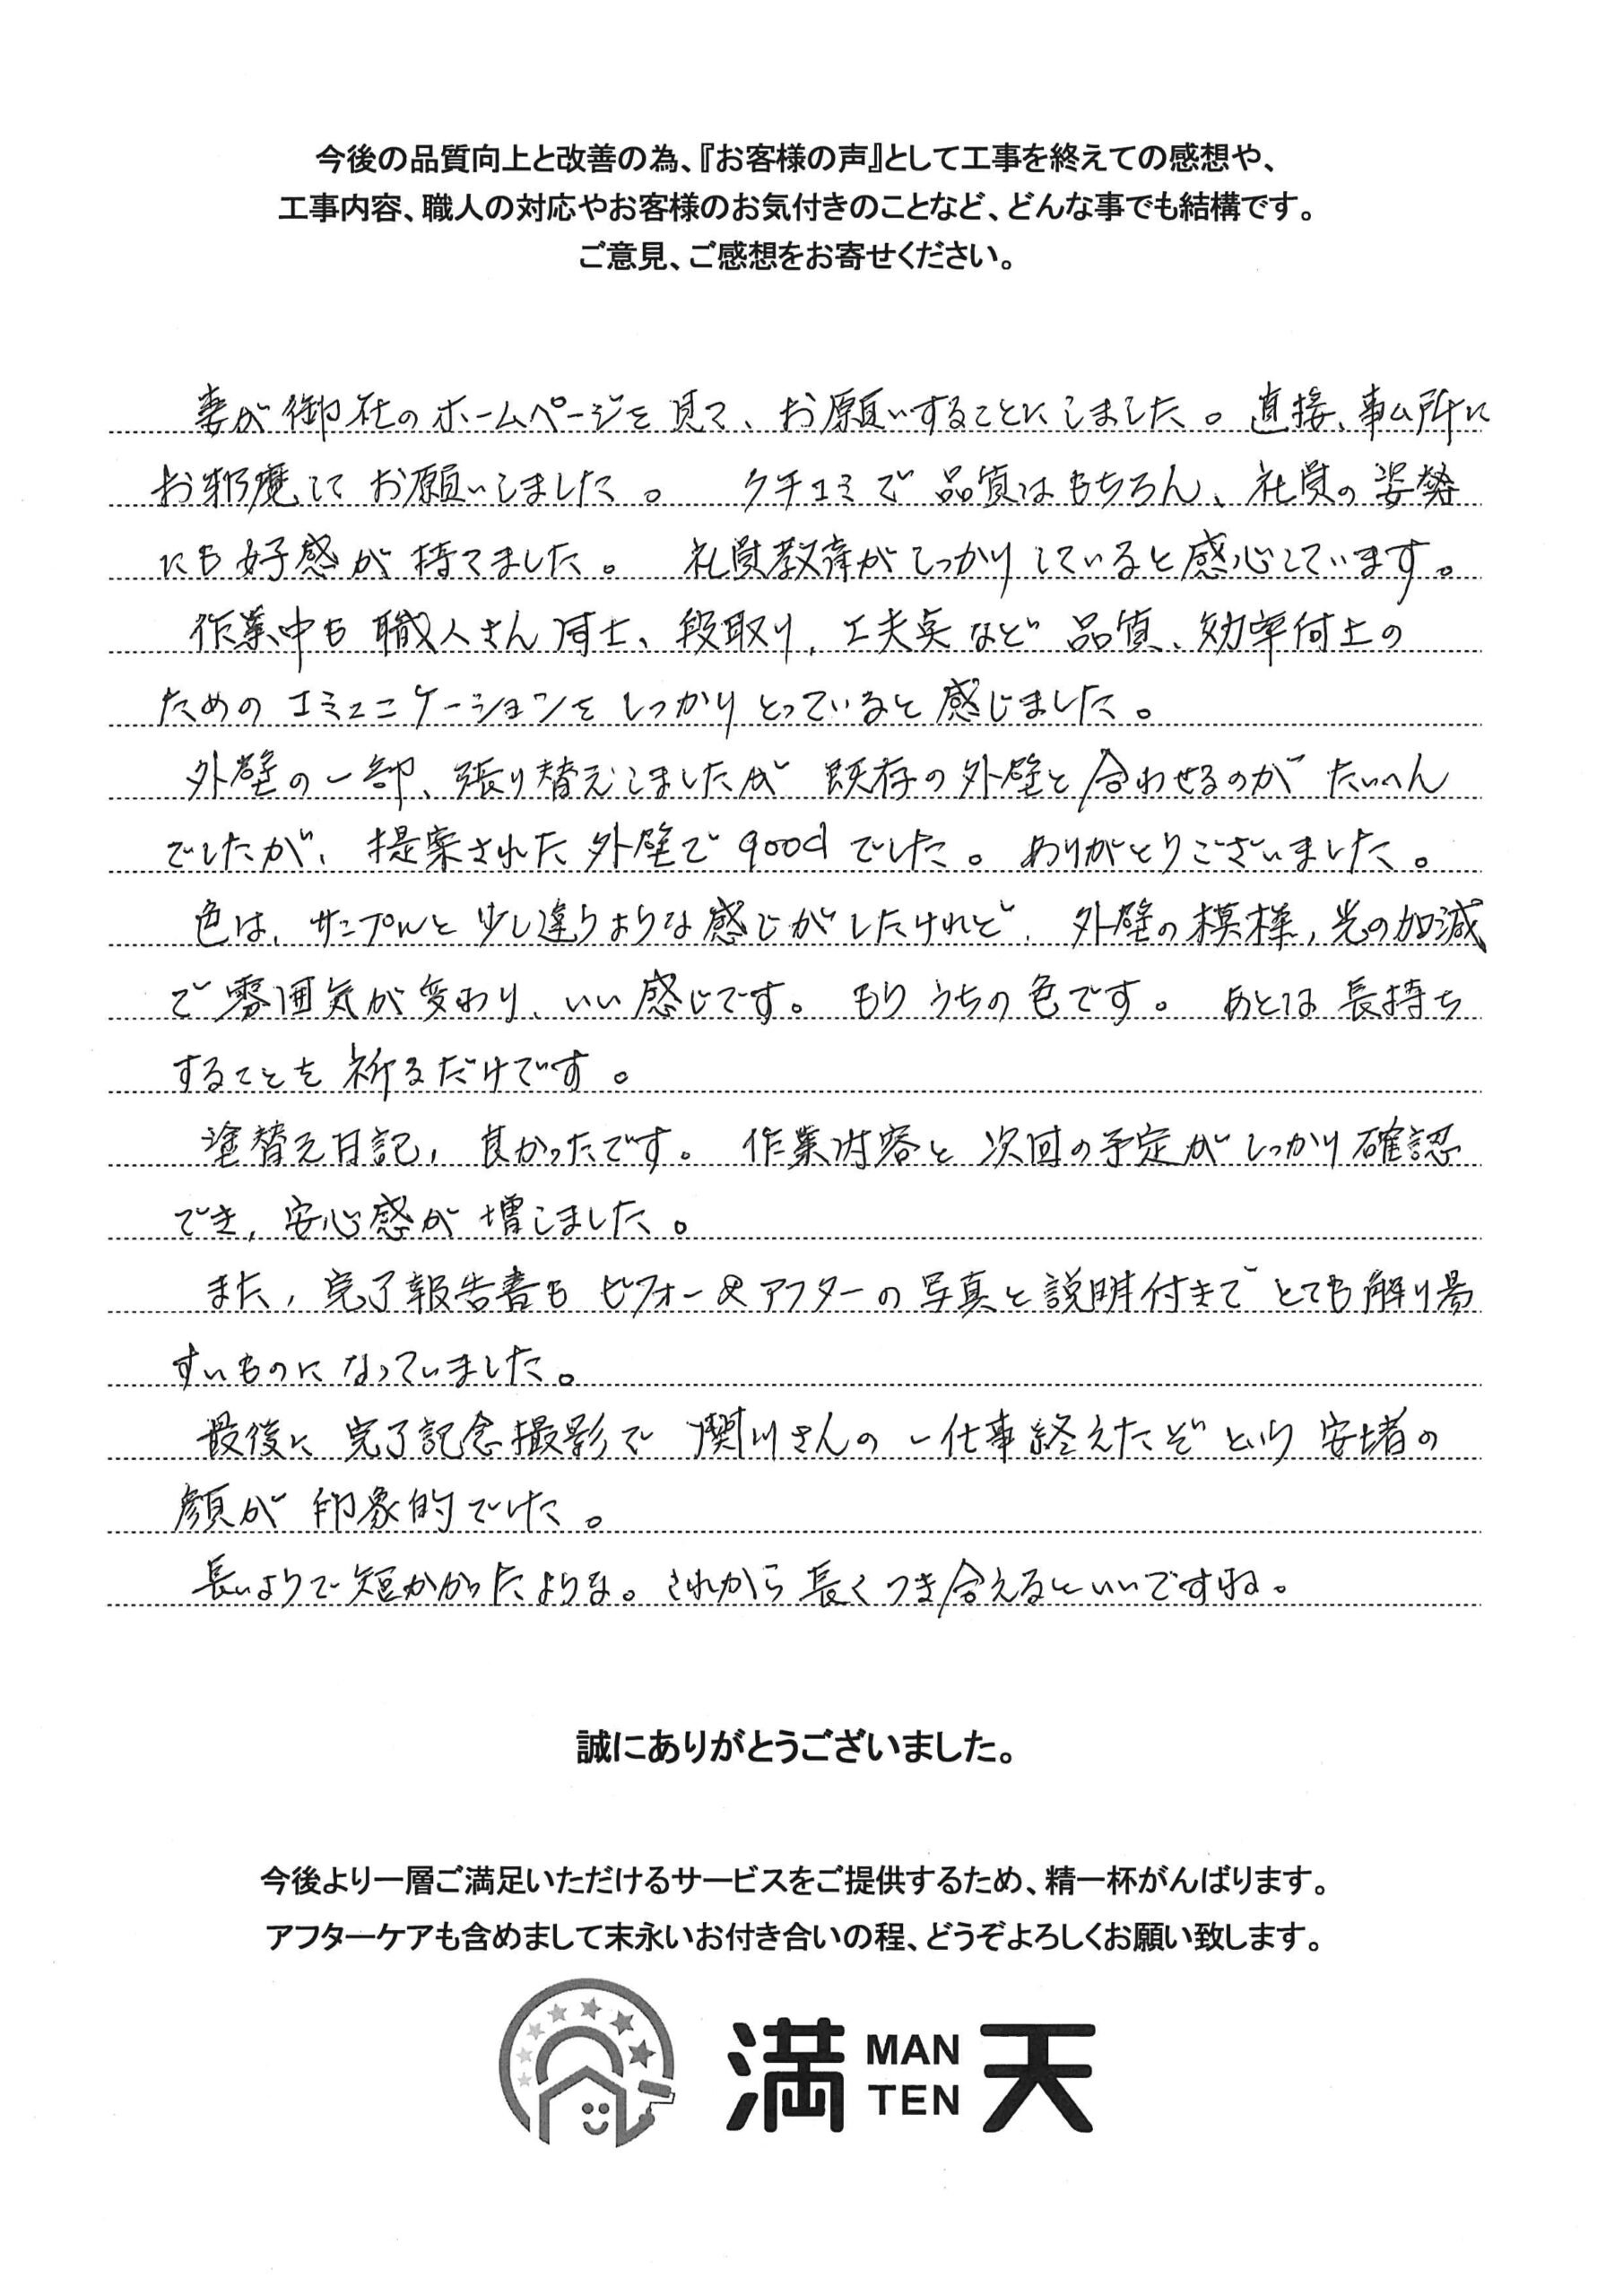 今後の品質向上と改善の為、『お客様の声』として工事を終えての感想や、
工事内容、職人の対応やお客様のお気付きのことなど、どんな事でも結構です。
ご意見、ご感想をお寄せください。
妻が御社のホームページを見て、お願いすることにしました。直接、事ム所に
お邪魔してお願いしました。 クチコミで品質はもちろん、社員の姿勢
にも好感が持てました。 社員教育がしっかりしていると感心しています。
作業中も職人さん同士、段取り、工夫点など品質、効率向上の
ためのコミュニケーションをしっかりとっていると感じました。
外壁の一部、張り替えしましたが既存の外壁と合わせるのがたいへん
でしたが、提案された外壁でgoodでした。ありがとうございました。
色は、サンプルと少し違うような感じがしたけれど、外壁の模様、光の加減
で雰囲気が変わり、いい感じです。もううちの色です。あとは長持ち
することを祈るだけです。
塗替え日記、良かったです。作業内容と次回の予定がしっかり確認
でき、安心感が増しました。
また、完了報告書もビフォー&アフターの写真と説明付きでとても解り易
すいものになっていました。
最後に完了記念撮影で関川さんの一仕事終えたぞという安堵の
顔が印象的でした。
長いようで短かかったような。これから長くつき合えるといいですね。
誠にありがとうございました。
今後より一層ご満足いただけるサービスをご提供するため、精一杯がんばります。
アフターケアも含めまして末永いお付き合いの程、どうぞよろしくお願い致します。
満 MAN TEN 天